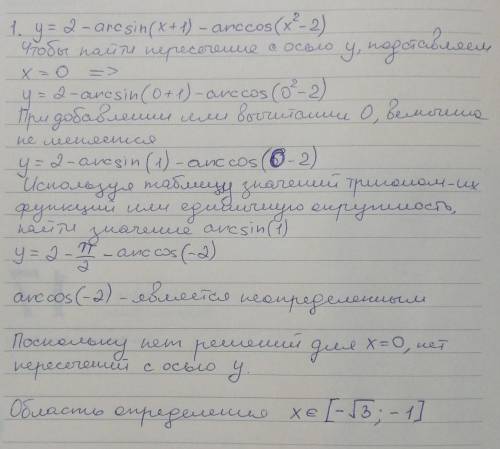 1. y = 2 - arcsin(x+1) - arccos(x²-2)
Чтобы найти пересечение с осью y, подставляем
x = 0 =>
y = 2 - arcsin(0+1) - arccos(0²-2)
При добавлении или вычитании 0, величина
не меняется
y = 2 - arcsin(1) - arccos(0-2)
Используя таблицу значений тригоном-их
функций или единичную окружность,
найти значение arcsin(1)
y = 2 - π/2 - arccos(-2)
arccos(-2) - является неопределенным
Поскольку нет решений для x=0, нет
пересечений с осью y.
Область определения x ∈ [-√3; -1]